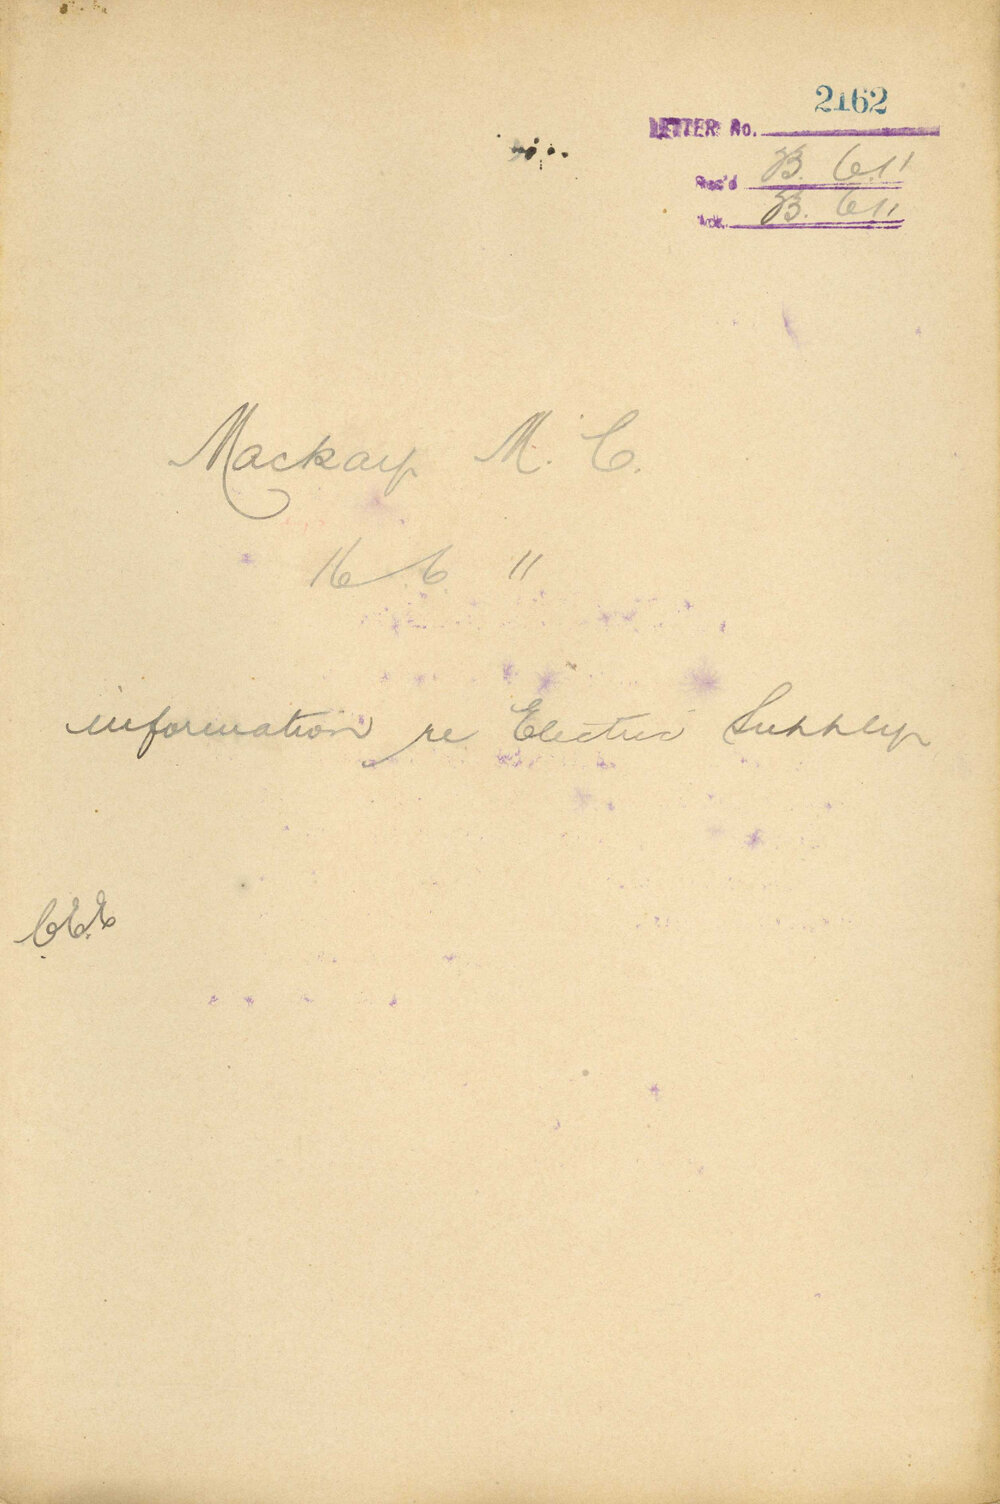 2162
LETTER No.
Rec'd 23. 6. 11
Ack. 23. 6 11
Mackay M. C.
16 6 11
information re Electric Supply
C.E.E